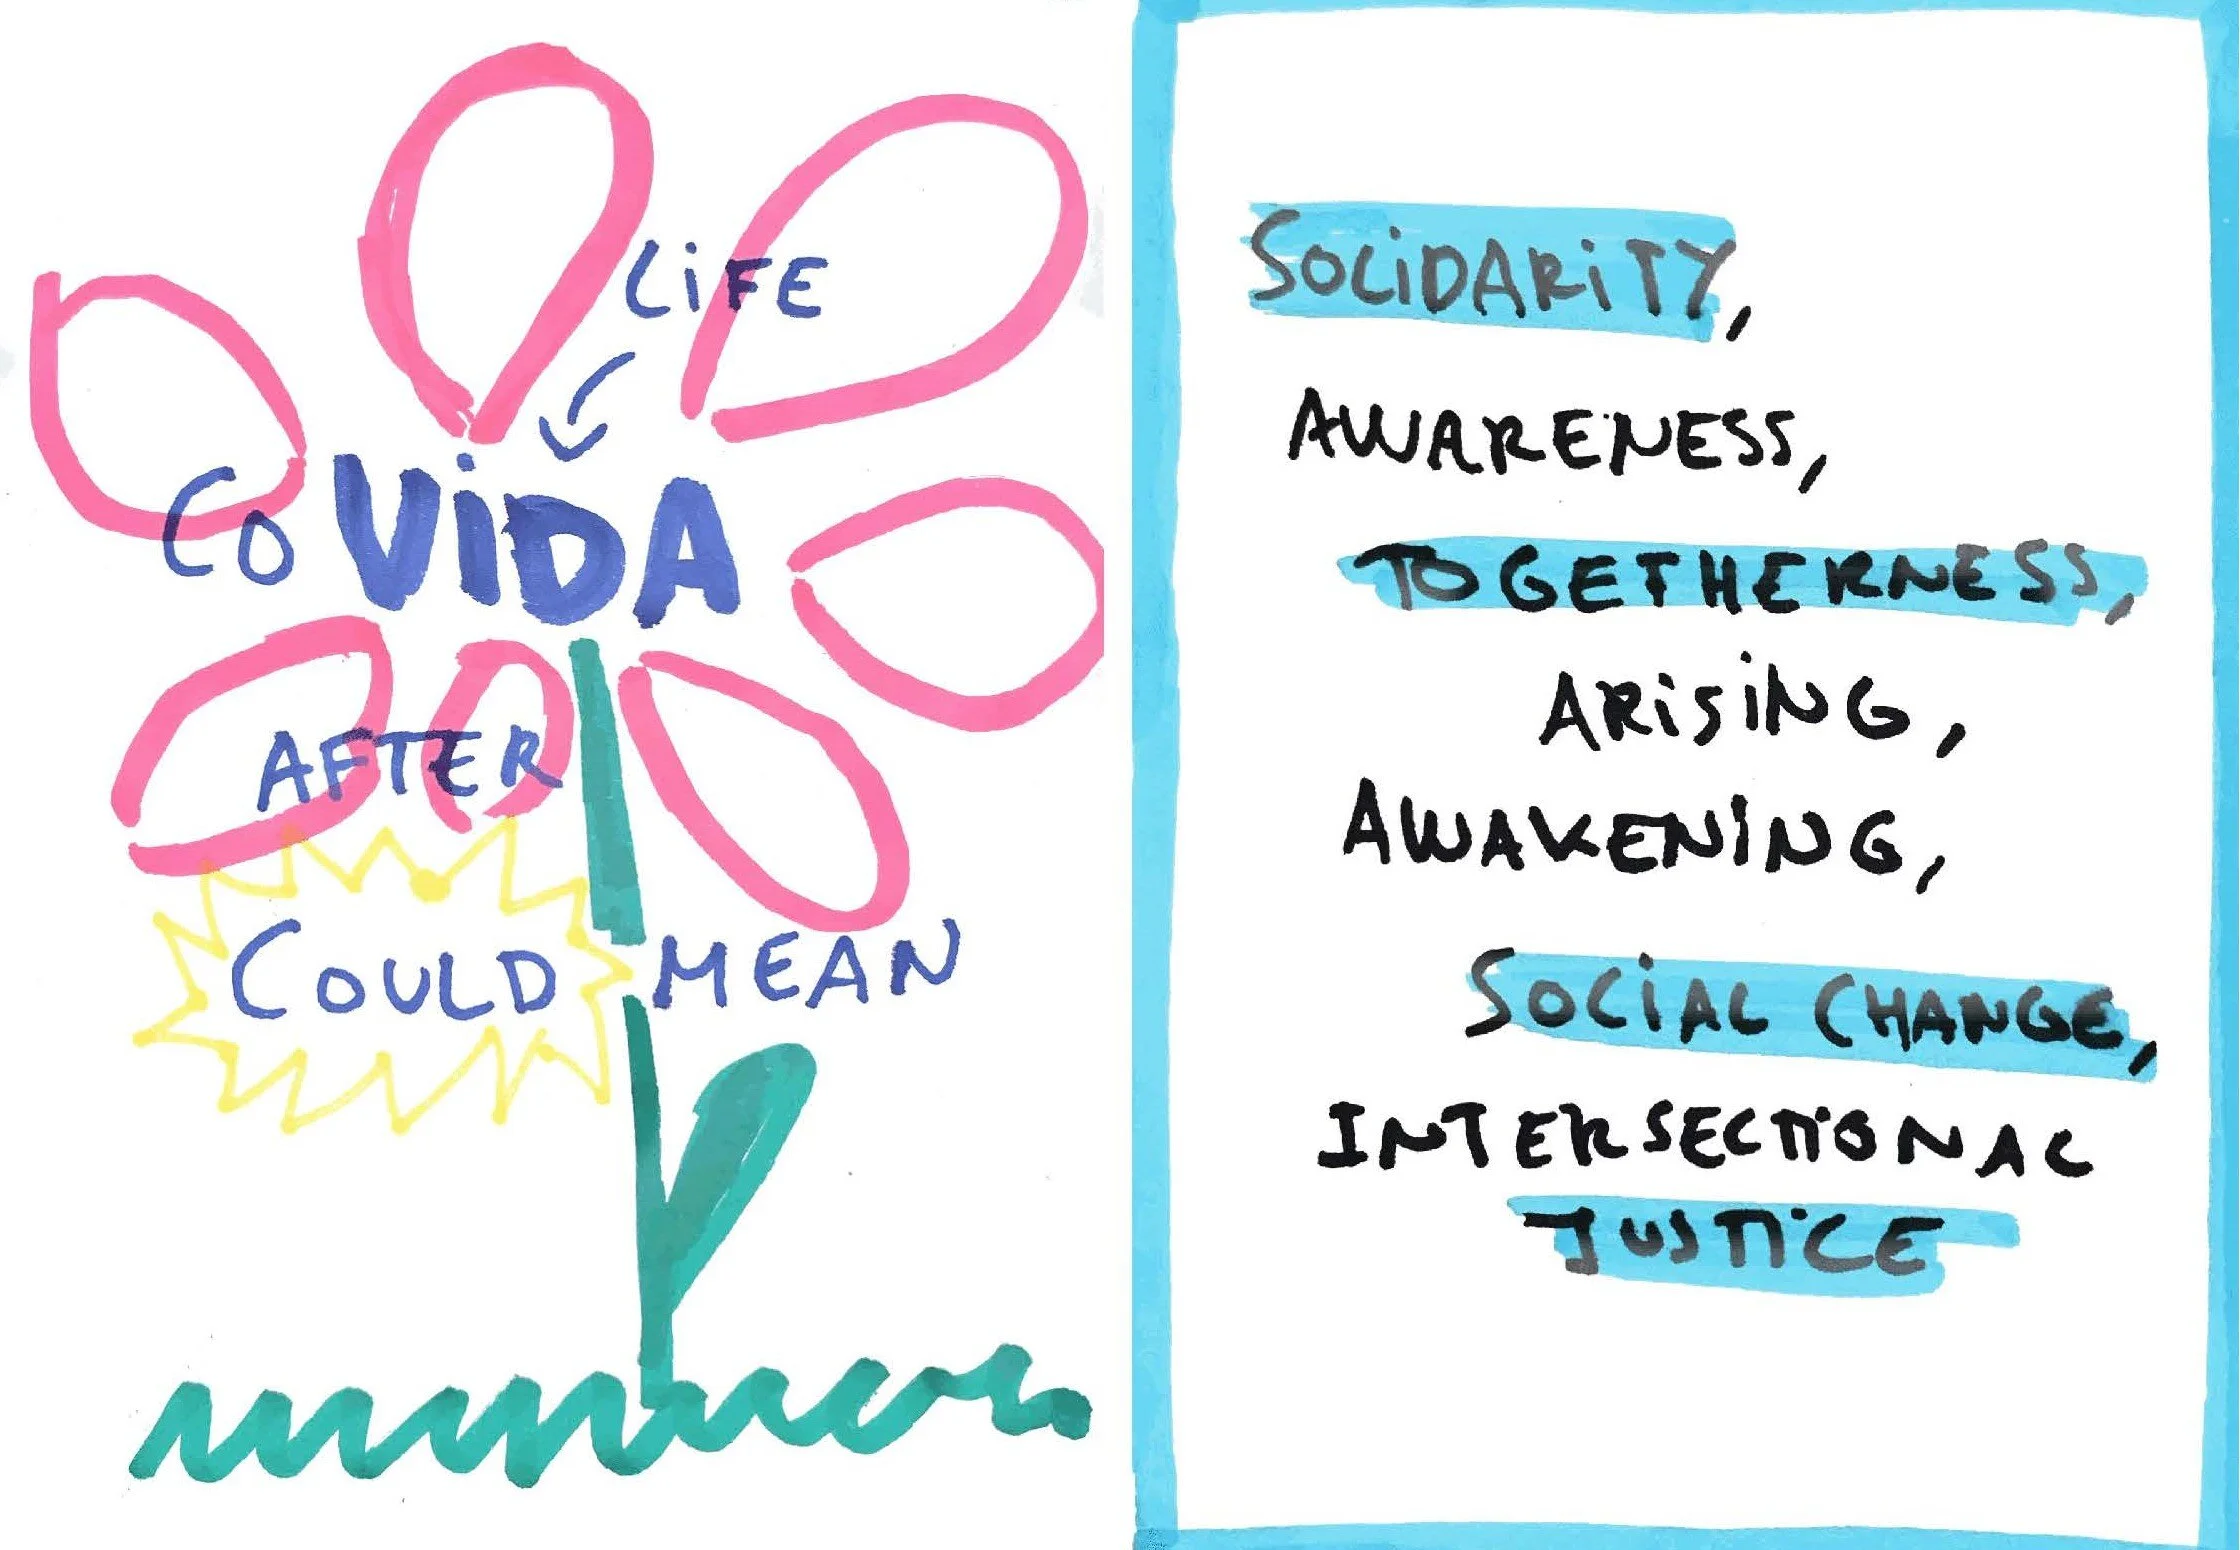 LiFE
CoViDA
AFTER
COULD MEAN
SOLiDARiTY,
AWARENESS,
TOGETHERNESS,
ARiSiNG,
AWAKENiNG,
SOCiAL CHANGE,
INTERSECTiONAL
JUSTiCE